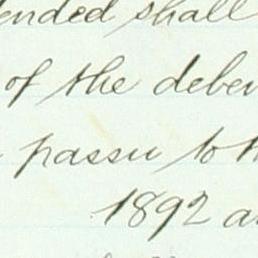 ended shall
of the deben
passu to t
1892 a